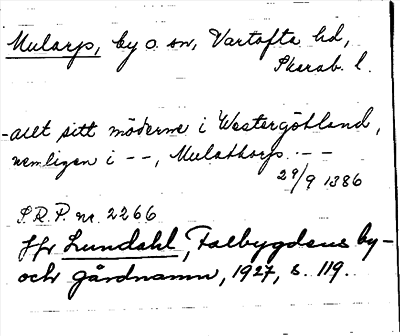 Mularp, by o. sn, Vartofta hd,
Skarab. l.
-allt sitt möderne i Westergöthland,
nemligen i --, Mulathorp. --
29/9 1386
S.R.P. nr. 2266
Jfr Lundahl, Falbygdens by-
och gårdnamn, 1927, s. 119.